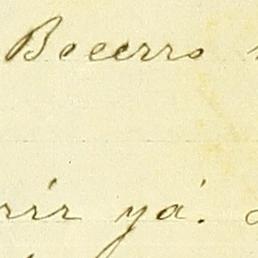 Bocerro
rir yá.